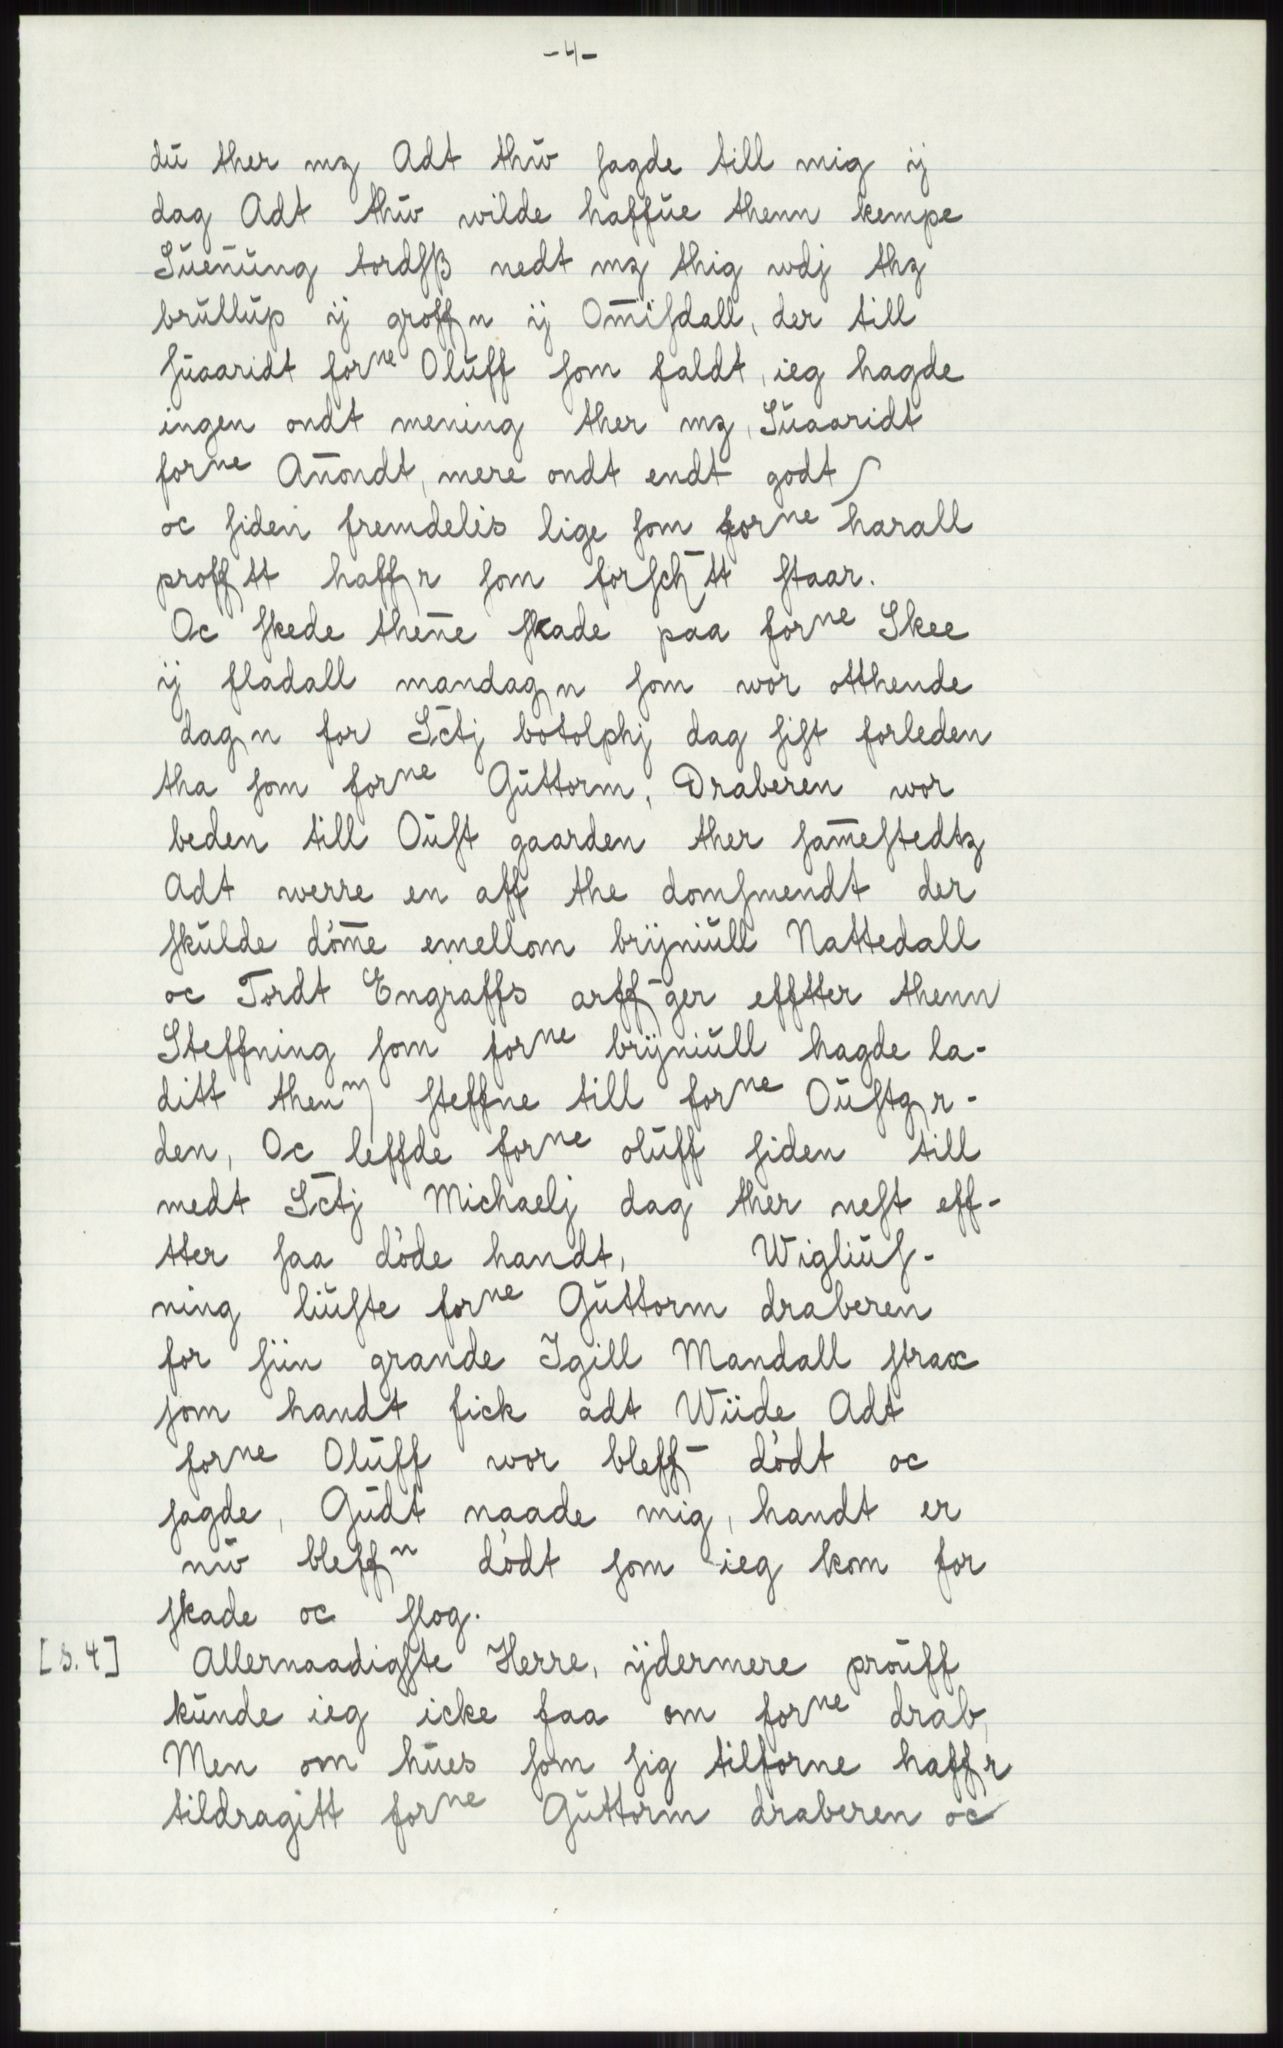 -4-
dŭ ther mꝫ Adt thŭv ſagde till mig ij
dag Adt thŭv wilde haffŭe thenn kempe
Sŭenŭng tordſꝭ nedt mꝫ thig wdj thꝫ
brŭllŭp ij groffn ij Om̅iſdall, der till
ſŭaaridt forne Olŭff ſom faldt, ieg hagde
ingen ondt mening ther mꝫ, Sŭaaridt
forne An̅ondt, mere ondt endt godt
oc ſiden fremdelis lige ſom forne harall
proffitt haffr ſom forſch̅tt ſtaar.
Oc ſkede then̅e ſkade paa forne Skee
ij fladall mandagn ſom wor otthende
dagn for Sc̅tj botolphj dag ſiſt forleden
tha ſom forne Gŭttorm, Draberen wor
beden till Oŭſt gaarden ther ſam̅eſtedtꝫ
Adt werre en aff the domſmendt der
ſkŭlde døm̅e emellom brijniŭll Nattedall
oc Tordt Engraffs arff̅ger efftter thenn
Steffning ſom forne brijniŭll hagde la-
ditt thenn ſteffne till forne Oŭſtgr-
den, Oc leffde forne olŭff ſiden till
medt Sc̅tj Michaelj dag ther neſt eff-
tter ſaa døde handt, Wigliŭſ-
ning liŭſte forne Gŭttorm draberen
for ſiin grande Igill Mandall ſtrax
ſom handt fick adt Wiide Adt
forne Olŭff wor bleff̅ dødt oc
ſagde, Gŭdt naade mig, handt er
nŭv bleffn dødt ſom ieg kom for
ſkade oc ſlog.
[s. 4] Allernaadigſte Herre, ijdermere proŭff
kŭnde ieg icke faa om forne drab,
Men om hŭes ſom ſig tilforne haffr
tildragitt forne Gŭttorm draberen oc